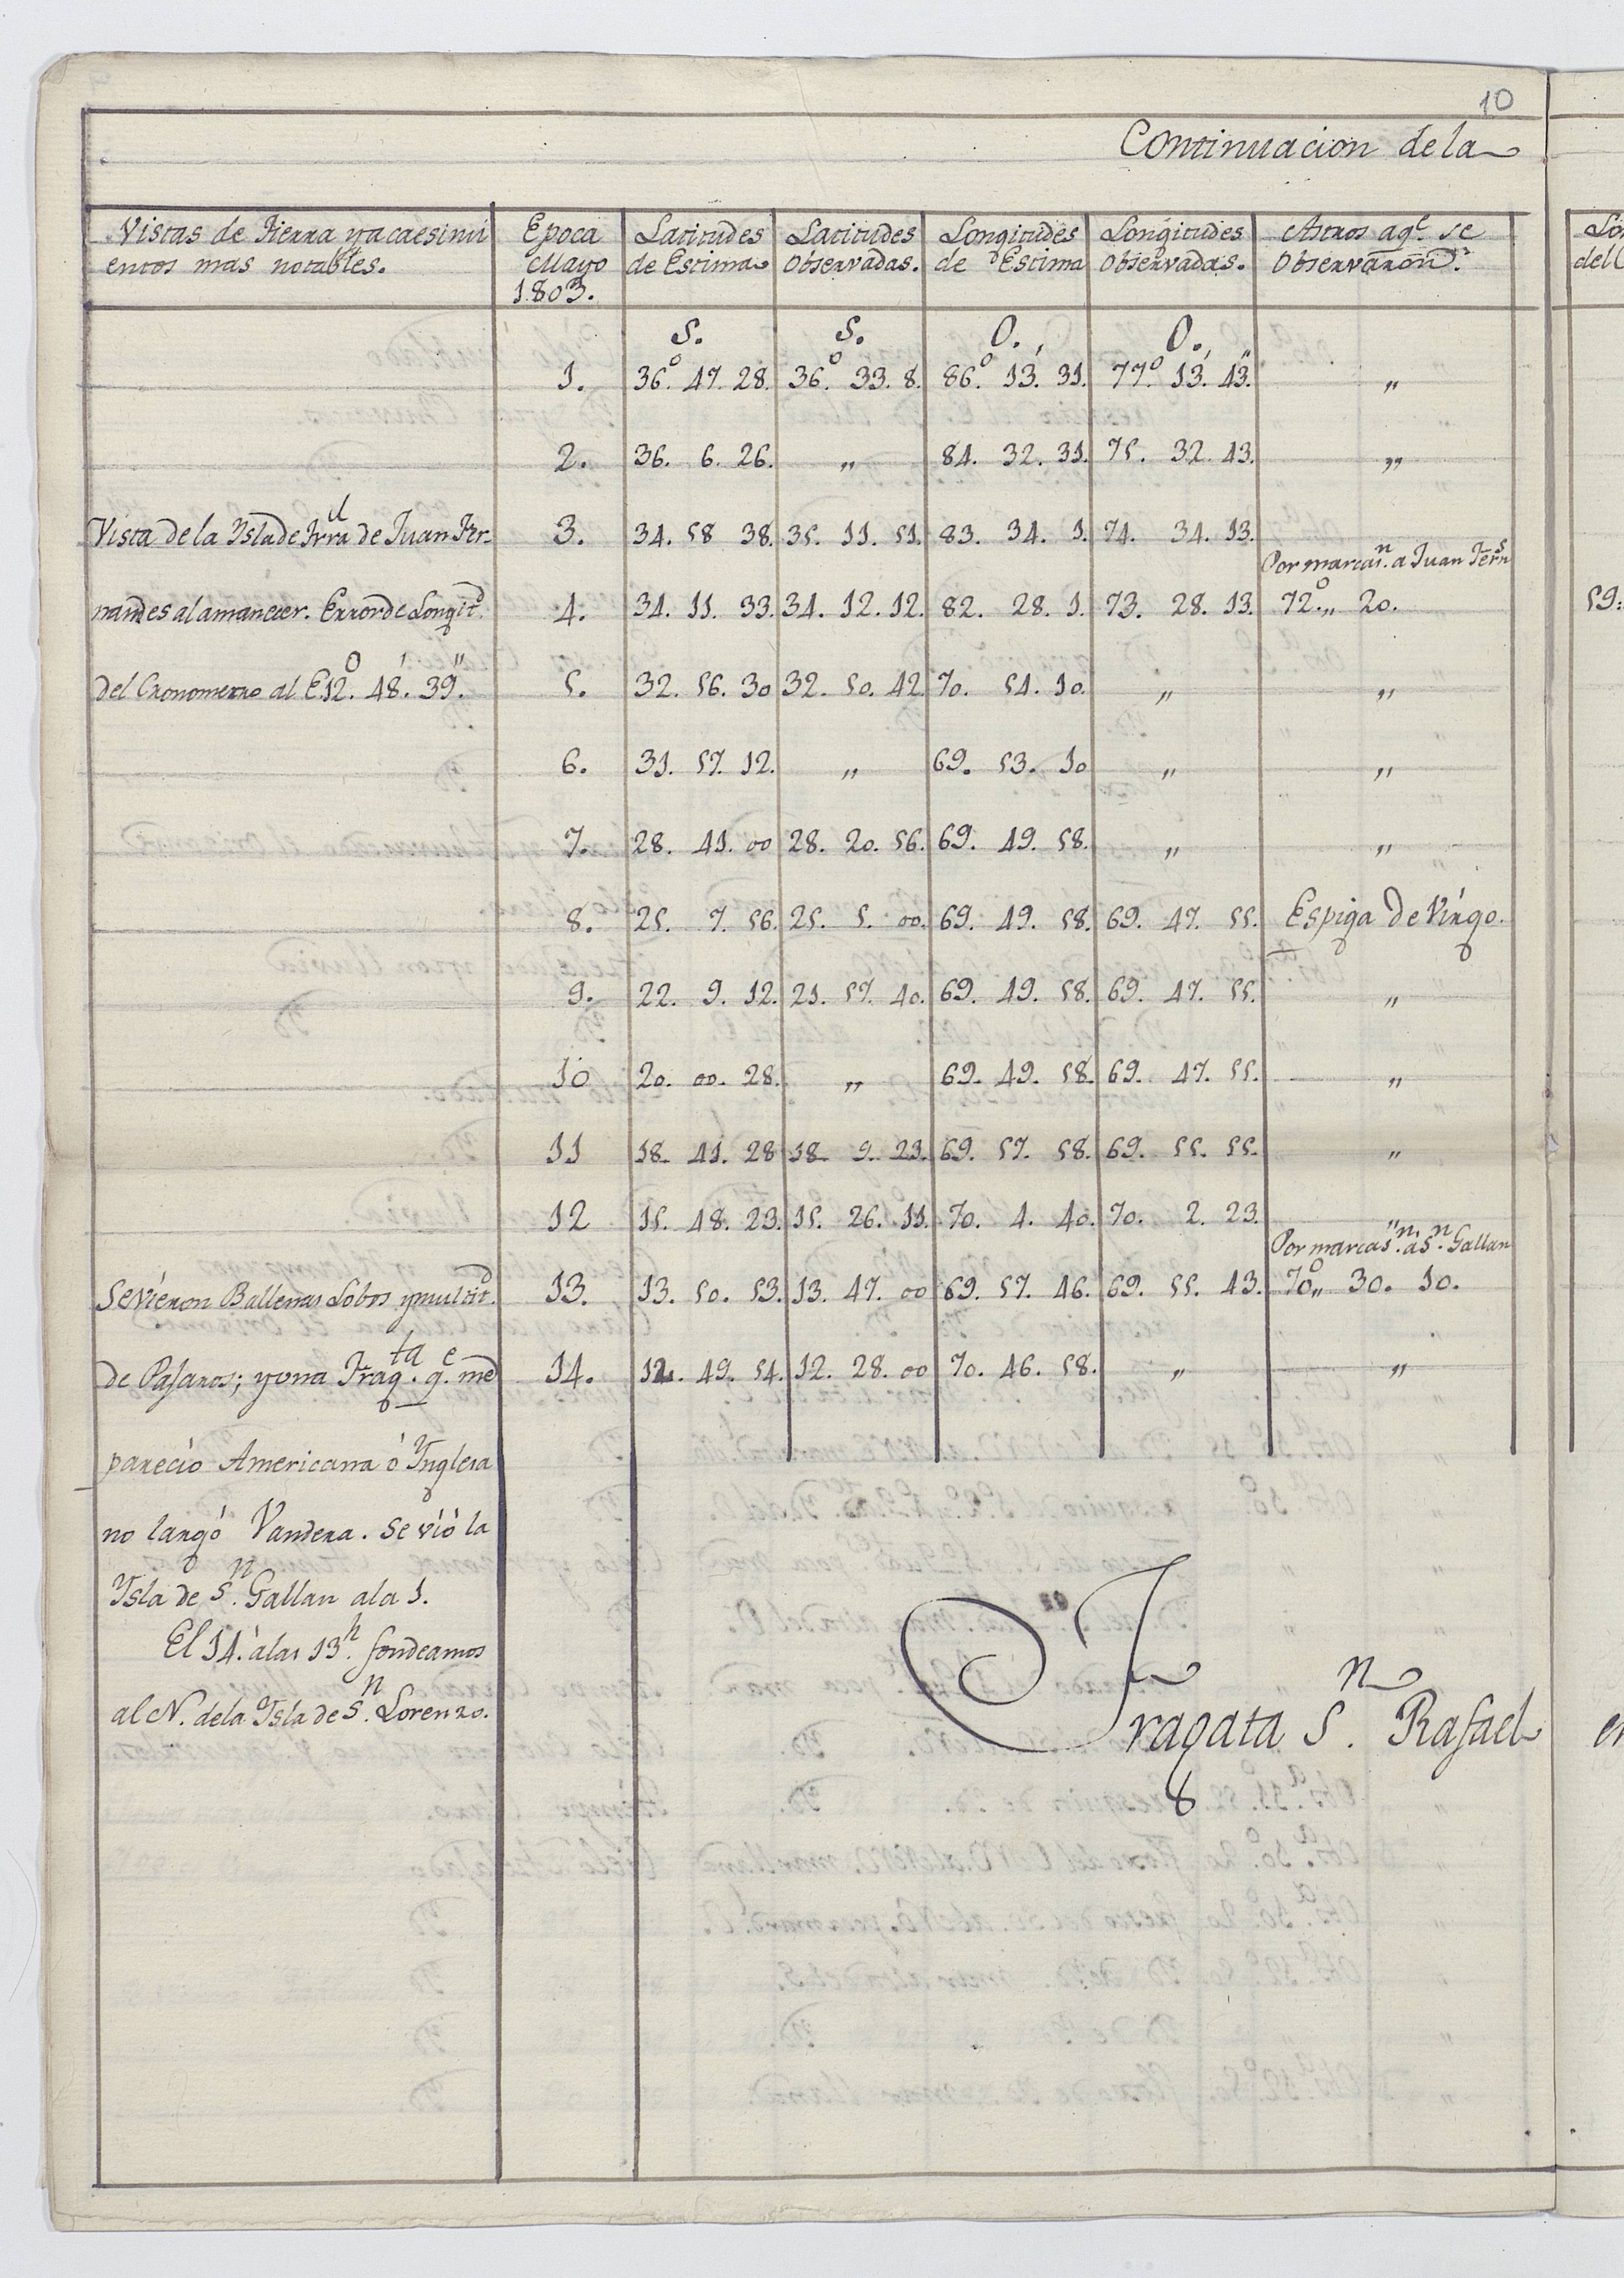 10
Continuacion de la
Vistas de Tierra y acaesimi
entos mas notables.
Epoca
Mayo
1803.
Latitudes
de Estima
Latitudes
Observadas.
Longitudes
de Estima
Longitudes
Observadas.
Astros aq.e se
Observaron.
S. S. O. O.
1. 36.° 47. 28. 36.° 33. 8. 86.° 13.' 31. 77.° 13.' 43." „
2. 36. 6. 26. „ 84. 32. 31. 75. 32. 43. „
Vista de la Ysla de Trra de Juan Fer- 3. 34. 58 38. 35. 11. 51. 83. 34. 1. 74. 34. 13.
Por marcas.n a Juan Fern.s
nandes al amanecer. Error de Longit.d 4. 34. 11. 33. 34. 12. 12. 82. 28. 1. 73. 28. 13. 72.° „ 20. 59:
del Cronometro al E 12.° 48.' 39." 5. 32. 56. 30 32. 50. 42 70. 54. 10. „ „
6. 31. 57. 12. „ 69. 53. 10 „ „
7. 28. 41. 00 28. 20. 56. 69. 49. 58. „ „
8. 25. 7. 56. 25. 5. 00. 69. 49. 58. 69. 47. 55. Espiga de Virgo.
9. 22. 9. 12. 21. 57. 40. 69. 49. 58. 69. 47. 55. „
10 20. 00. 28. „ 69. 49. 58. 69. 47. 55. „
11 18. 41. 28 18. 9. 23. 69. 57. 58. 69. 55. 55. „
12 15. 48. 23. 15. 26. 11. 70. 4. 40. 70. 2. 23. „
Por marcas.n a S.n Gallan
Se vieron Ballenas Lobos y multit.d 13. 13. 50. 53. 13. 47. 00 69. 57. 46. 69. 55. 43. 70.° „ 30. 10.
de Pajaros; y una Frag.ta q.e me 14. 12. 49. 54. 12. 28. 00 70. 46. 58. „ „
pareció Americana ó Ynglesa
no largó Vandera. Se vió la
Ysla de S.n Gallan ala 1.
El 14. á las 13.h fondeamos
al N. de la Ysla de S.n Lorenzo.
Fragata S.n Rafael